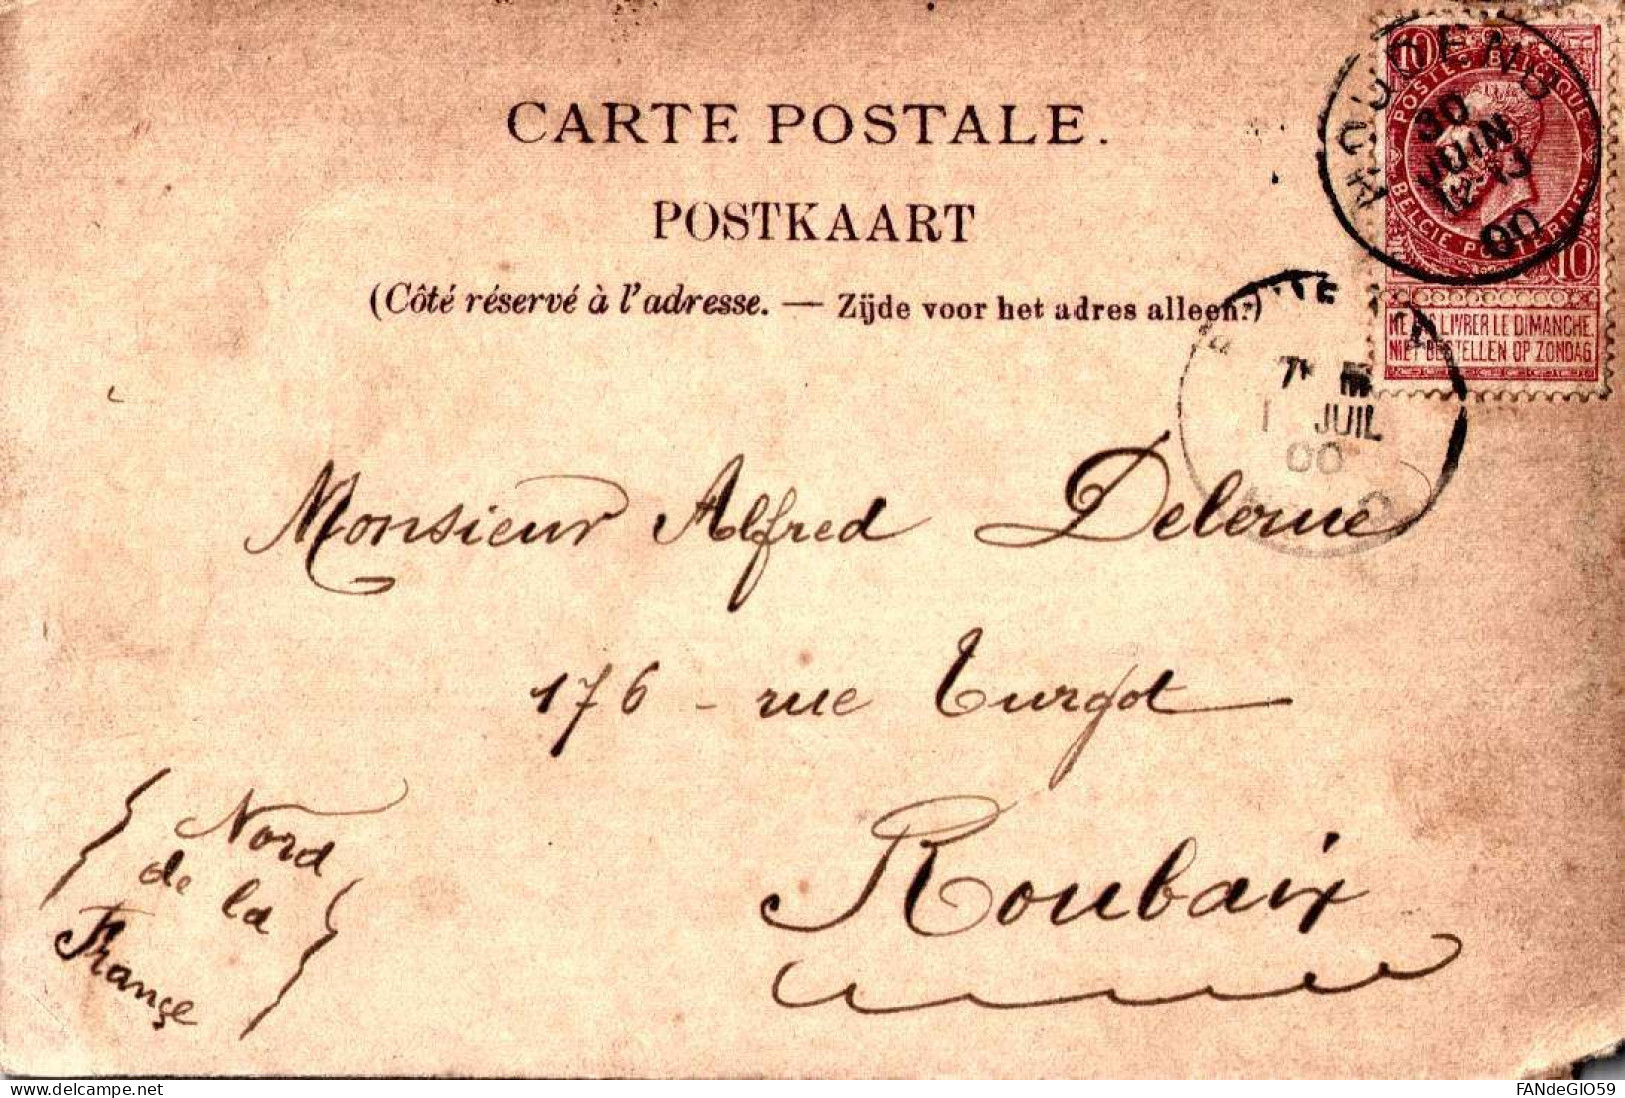 CARTE POSTALE.
POSTKAART
(Côté réservé à l'adresse. — Zijde voor het adres alleen.)
10
POSTES BELGIQUE
BELGIE POSTERIJEN
10
NE PAS LIVRER LE DIMANCHE
NIET BESTELLEN OP ZONDAG
30
JUIN
12-13
00
1 JUIL
00
Monsieur Alfred Delerue
176 - rue Turgot
Roubaix
Nord
de la
France
delcampe.net
FANdeGIO59